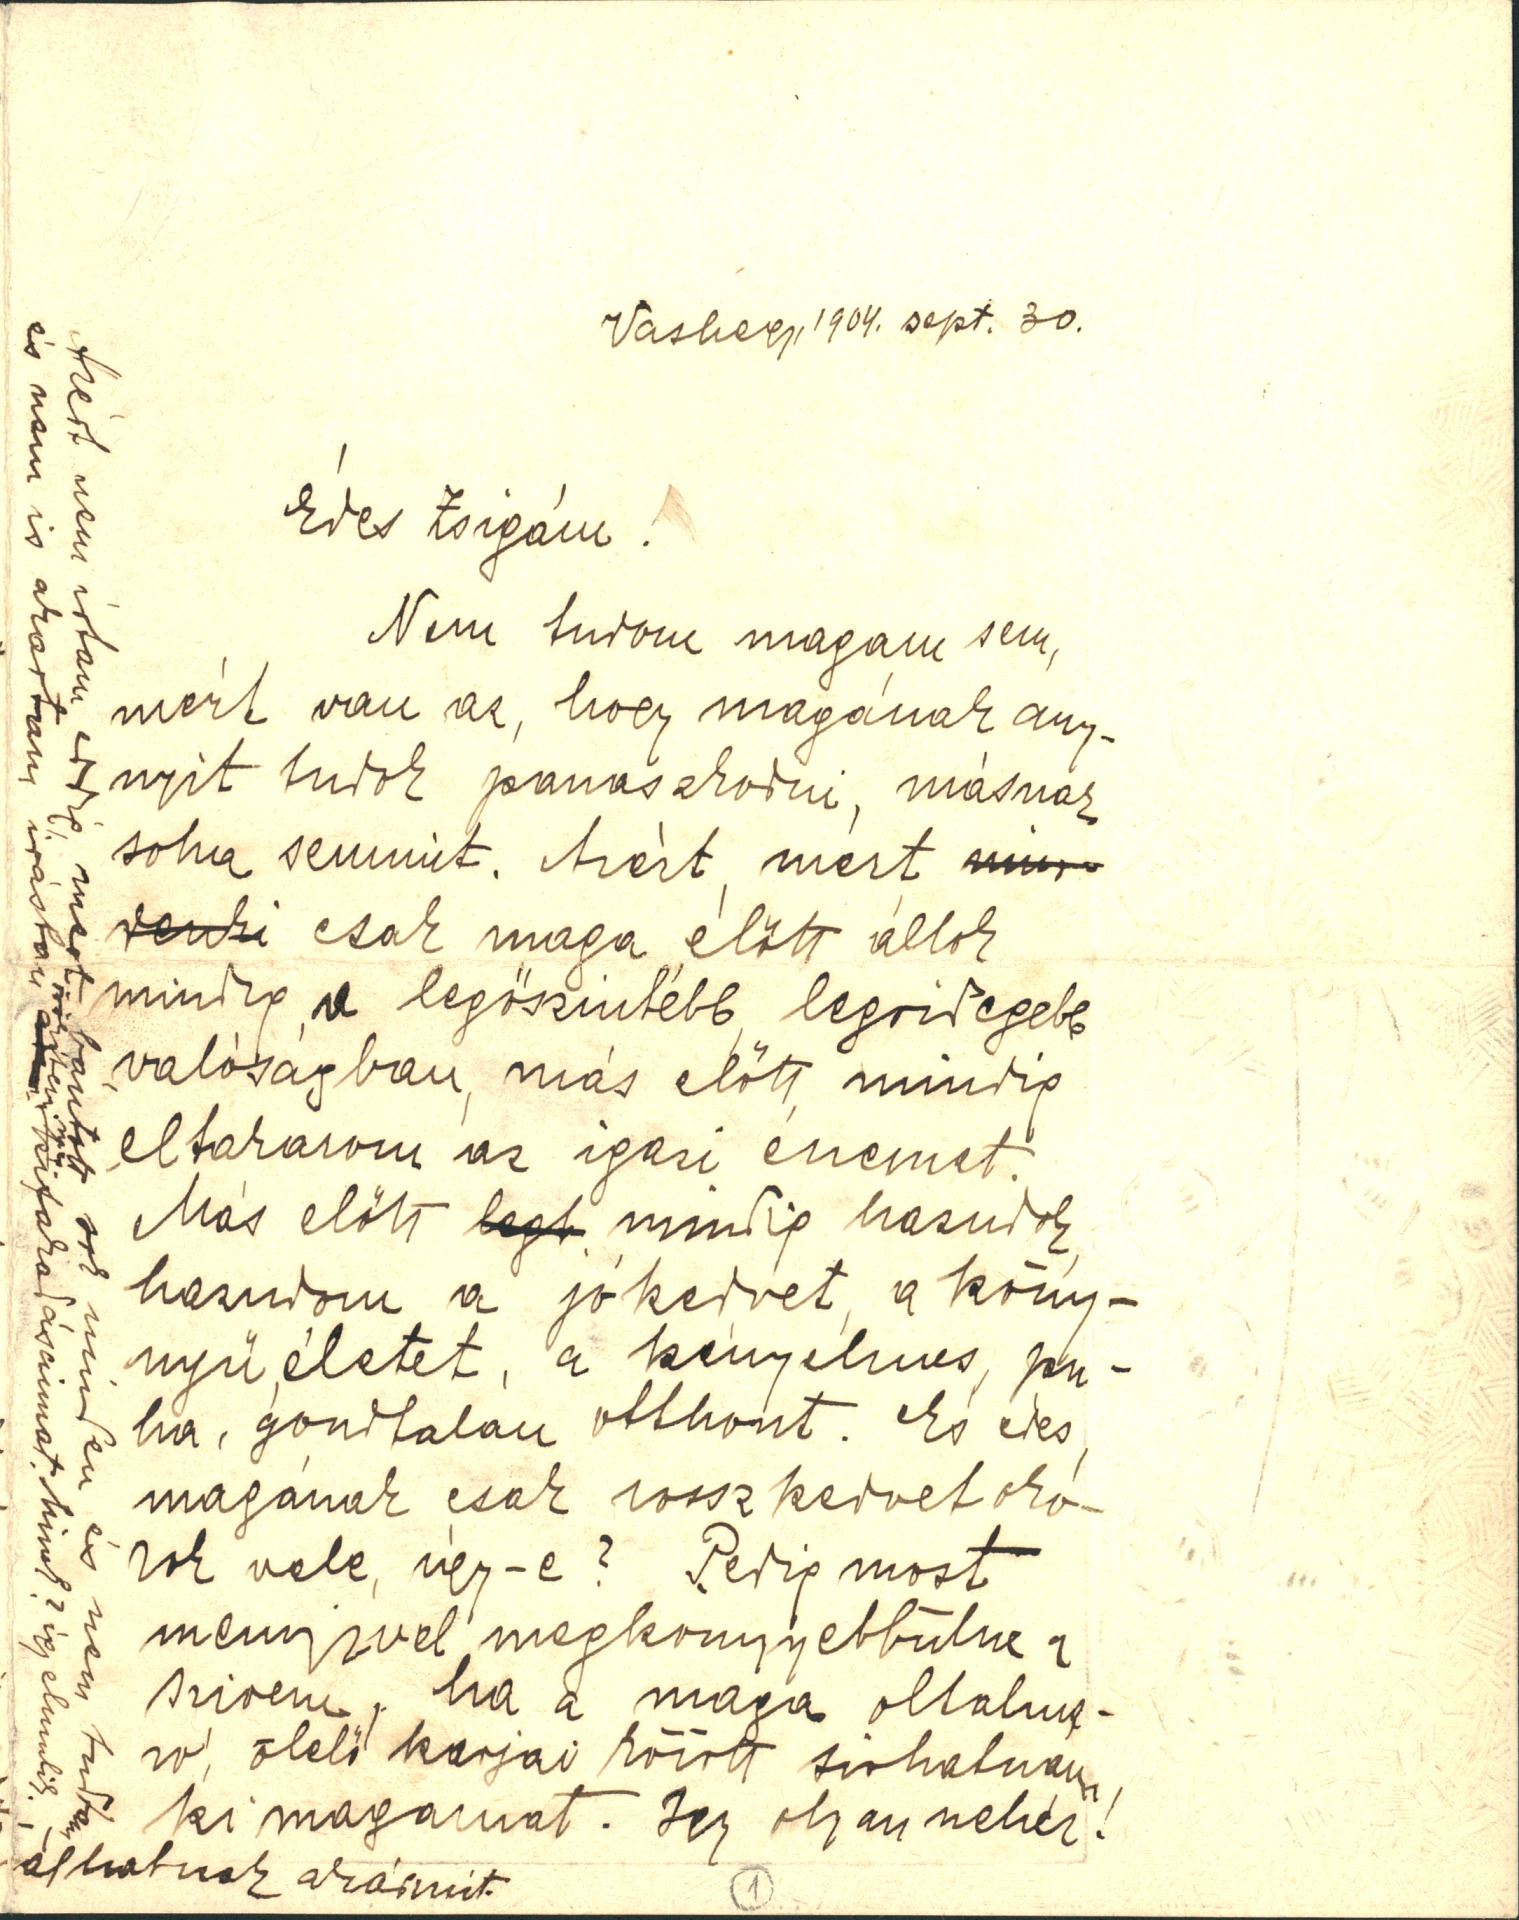 Vashegy, 1904. sept. 30.
Édes Zsigám!
Nem tudom magam sem,
mért van az, hogy magának any-
nyit tudok panaszkodni, másnak
soha semmit. Azért, mert min-
denki csak maga előtt állok
mindig a legőszintébb, legridegebb
valóságban, más előtt mindig
eltakarom az igazi énemet.
Más előtt legt mindig hazudok,
hazudom a jókedvet, a köny-
nyű életet, a kényelmes, pu-
ha, gondtalan otthont. És édes,
magának csak rossz kedvet oko-
zok vele, úgy-e? Pedig most
mennyivel megkönnyebbülne a
szivem, ha a maga oltalma-
zó, ölelő karjai között sirhatnám
ki magamat. Igy olyan nehéz!
Azért nem írtam eddig, mert bántott sok minden és nem tudtam
és nem is akartam irásban kitakadásaimat. Minek? úgy elmulik,
álhatnak akármit.
1